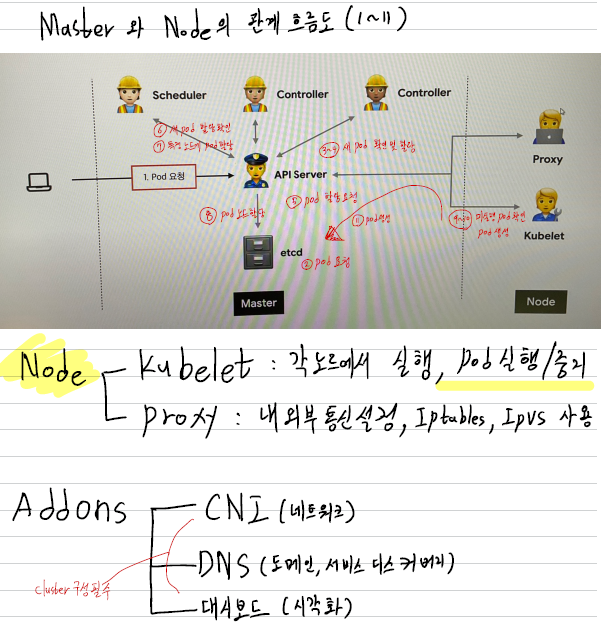 Master 와 Node의 관계 흐름도 (1~11)
Scheduler
Controller
Controller
⑥ 새 pod 할당 확인
⑦ 특정 노드에 pod 할당
③~④ 새 pod 확인 및 할당
Proxy
1. Pod 요청
API Server
⑤ pod 할당 요청
⑧ pod 노드 할당
⑪ pod 생성
⑨~⑩ 미실행 pod 확인
pod 생성
Kubelet
etcd
② pod 요청
Master
Node
Node
Kubelet : 각 노드에서 실행, pod 실행/중지
proxy : 내외부 통신 설정, Iptables, Ipvs 사용
Addons
CNI (네트워크)
DNS (도메인, 서비스 디스커버리)
cluster 구성 필수
대시보드 (시각화)